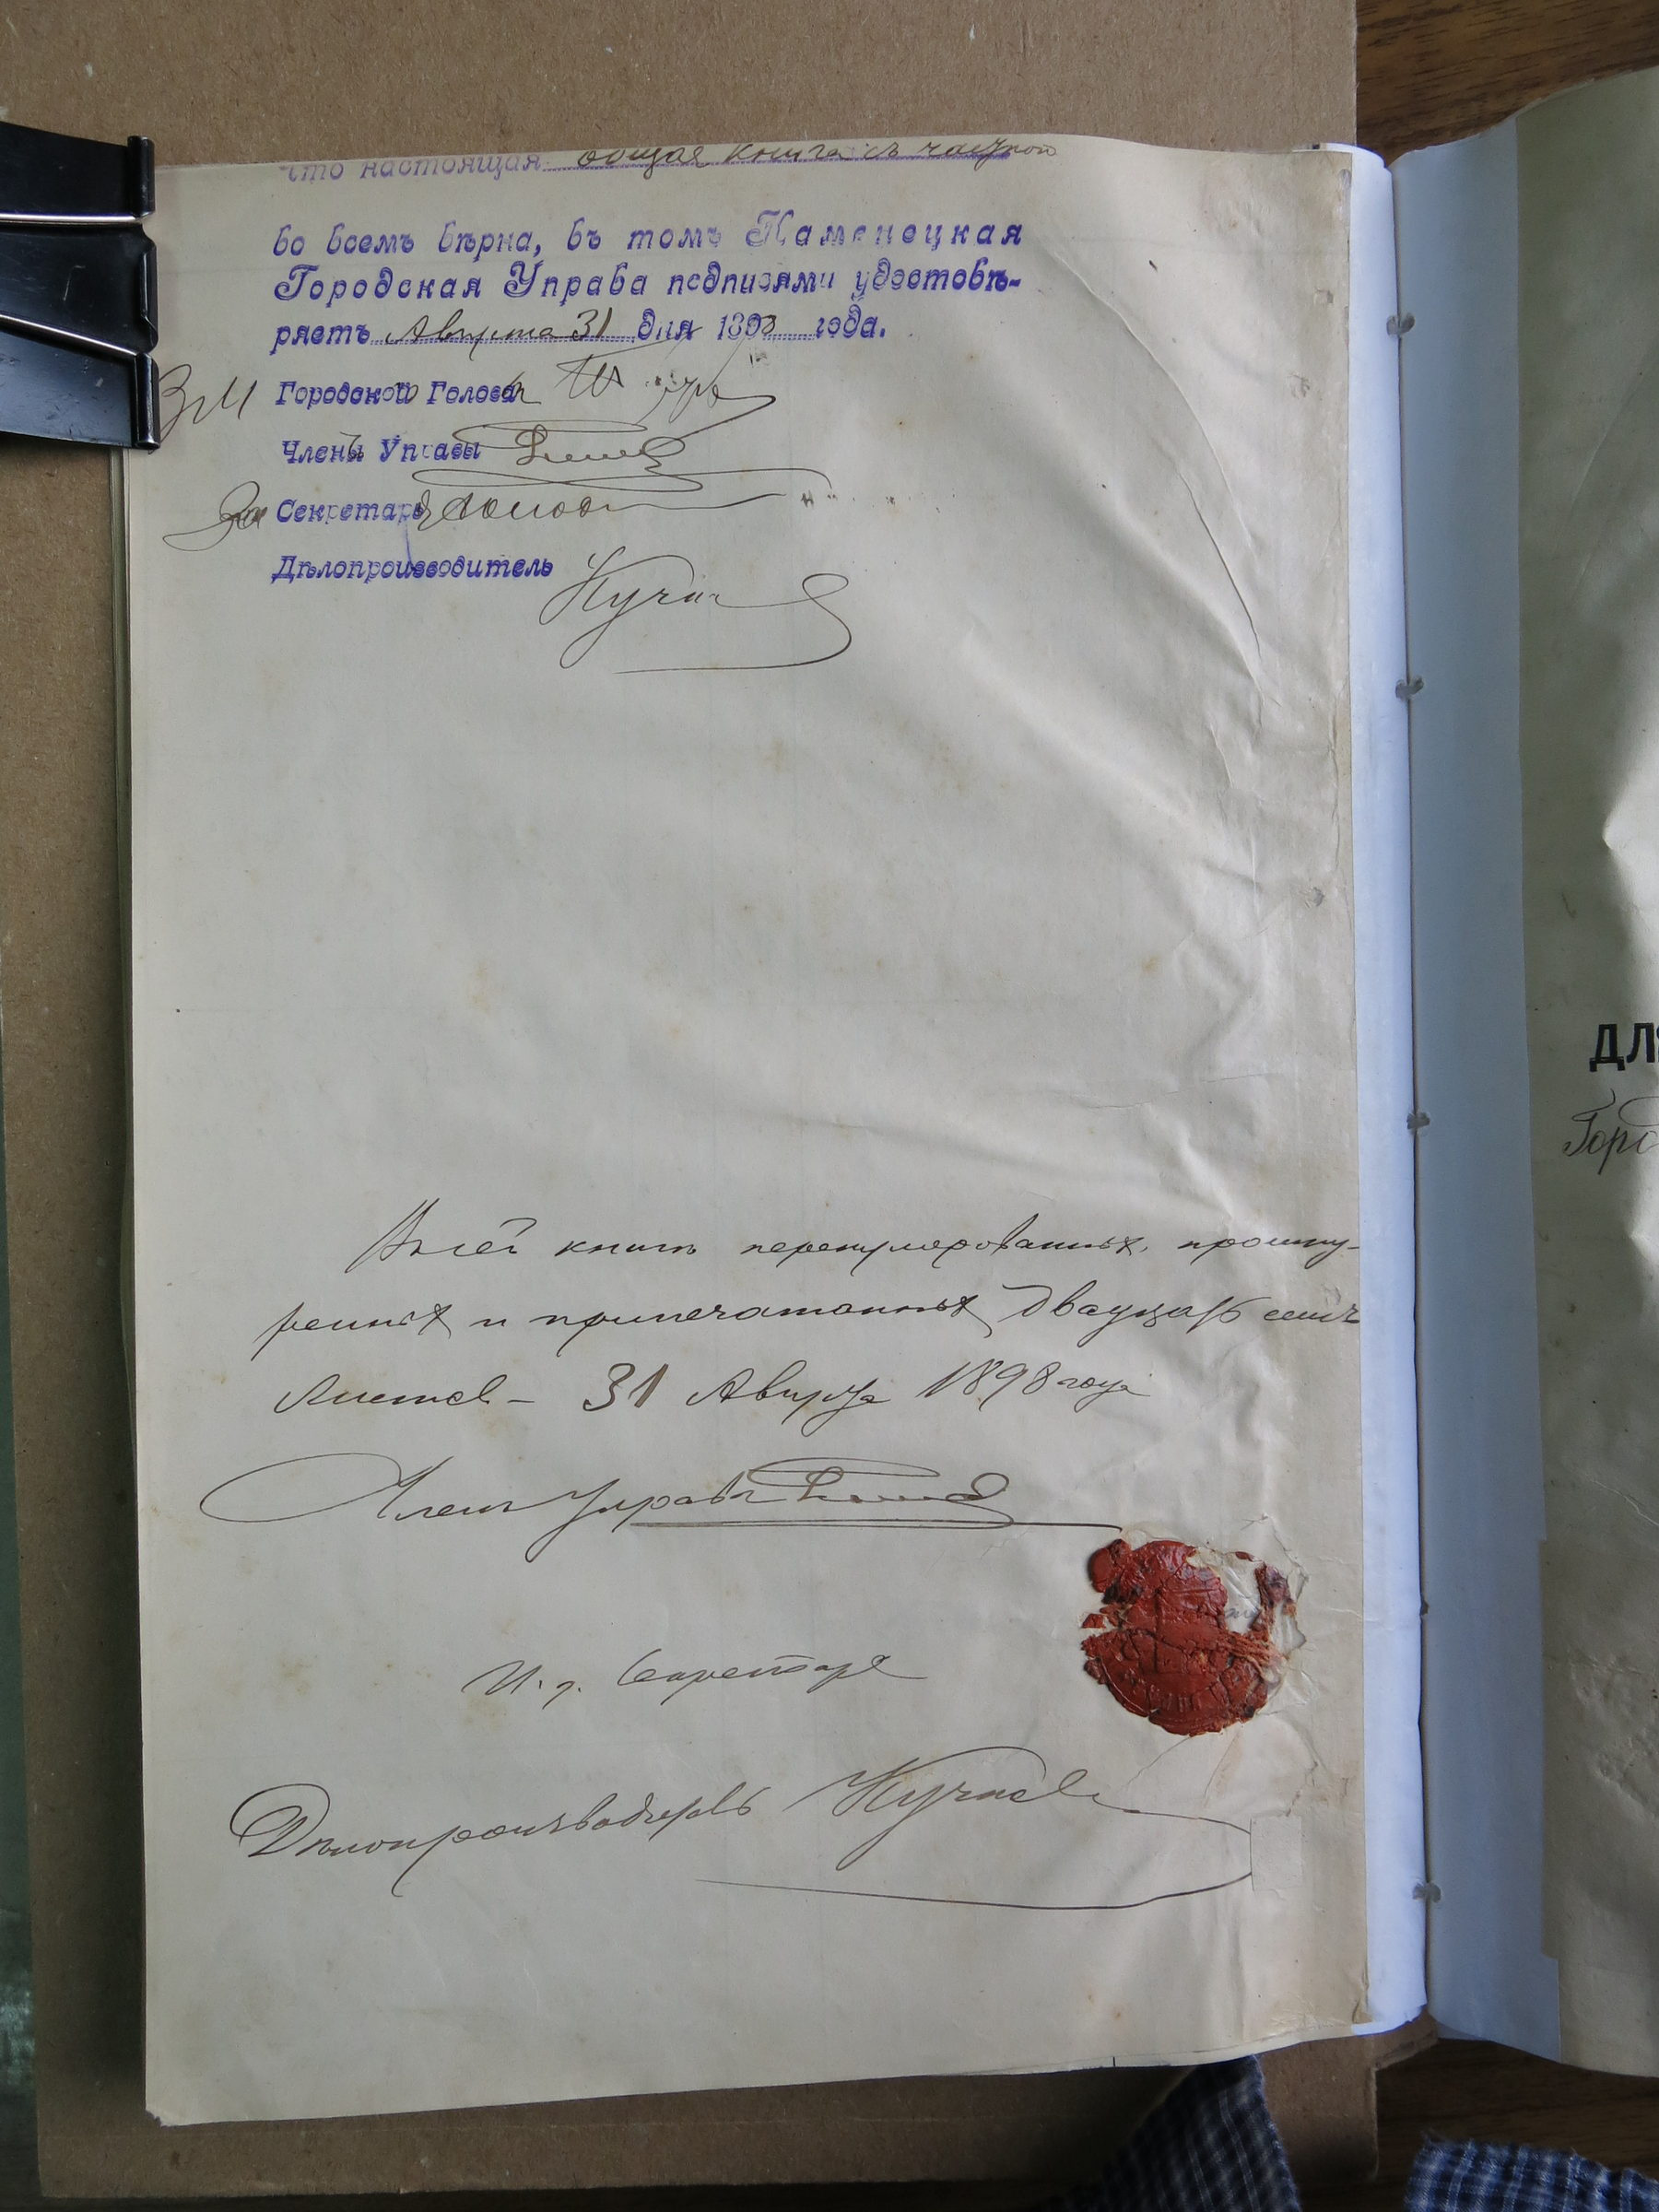 что настоящая общая книга съ частной
во всемъ вѣрна, въ томъ Каменецкая
Городская Управа подписями удостовѣ-
ряетъ Августа 31 дня 1898 года.
Городской Голова
Члены Управы
За Секретаря
Дѣлопроизводитель
Въ сей книгѣ перенумерованныхъ, прошну-
ренныхъ и припечатанныхъ двадцать семь
листовъ – 31 Августа 1898 года
Членъ Управы
И. д. Секретаря
Дѣлопроизводитель
ДЛЯ
Горо